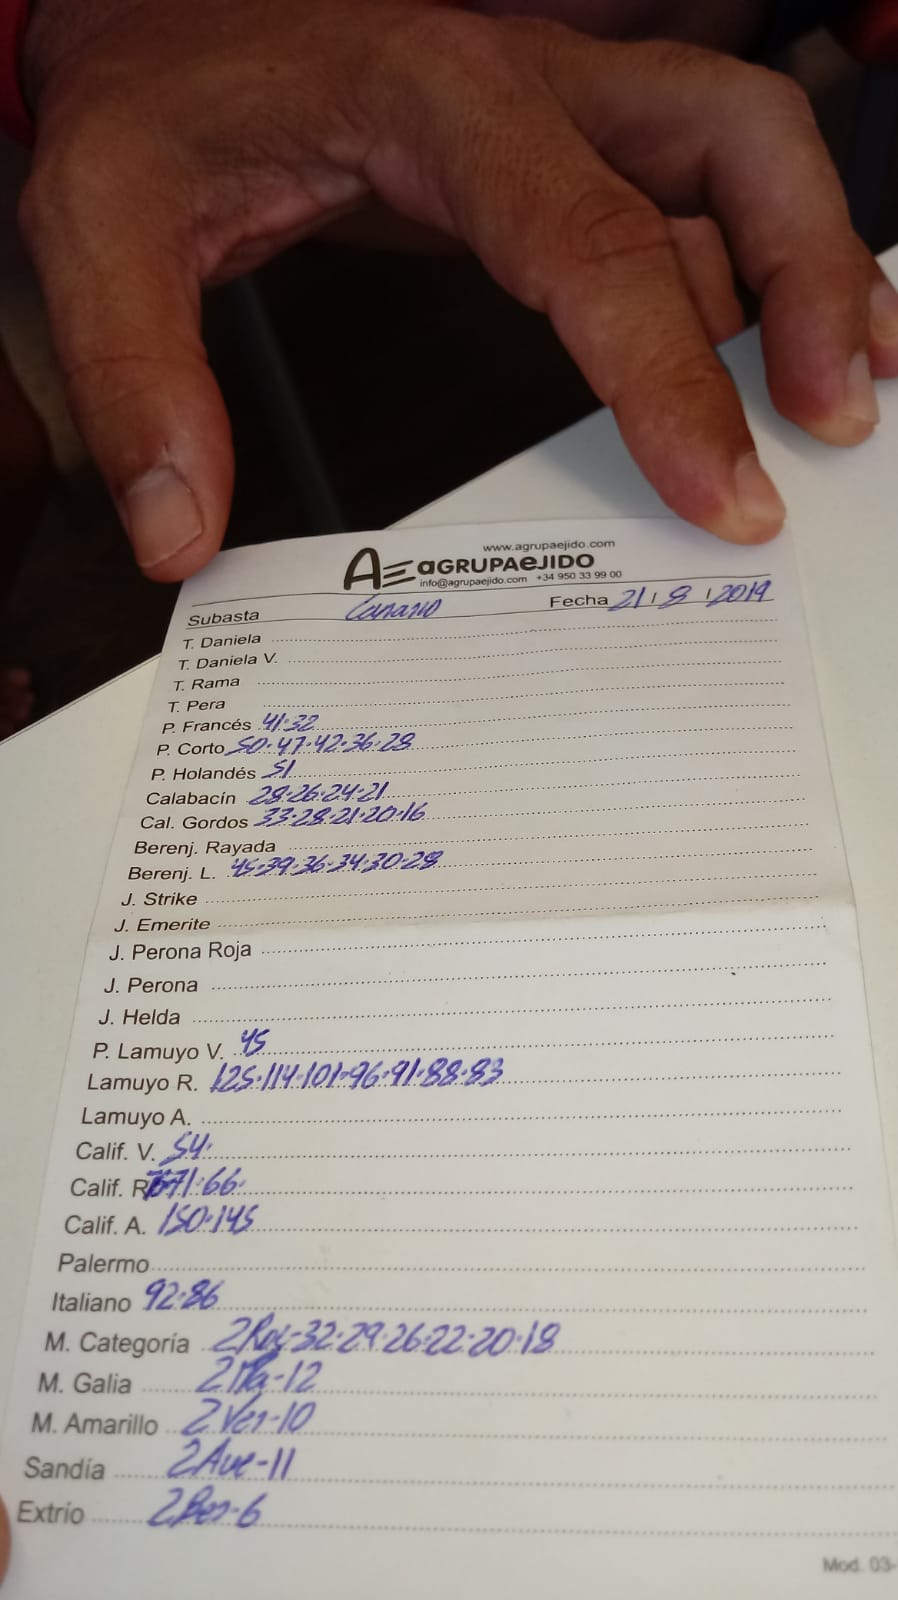 www.agrupaejido.com
AE aGRUPAeJIDO
info@agrupaejido.com +34 950 33 99 00
Subasta Canario Fecha 21/8/2019
T. Daniela
T. Daniela V.
T. Rama
T. Pera
P. Francés 41·32
P. Corto 50·47·42·36·28
P. Holandés 51
Calabacín 28·26·24·21
Cal. Gordos 33·28·21·20·16
Berenj. Rayada
Berenj. L. 45·39·36·34·30·28
J. Strike
J. Emerite
J. Perona Roja
J. Perona
J. Helda
P. Lamuyo V. 45
Lamuyo R. 125·114·101·96·91·88·83
Lamuyo A.
Calif. V. 54·
Calif. R 71·66·
Calif. A. 150·145
Palermo
Italiano 92·86
M. Categoría 2Roj-32·29·26·22·20·18
M. Galia 12
M. Amarillo 2Ver-10
Sandía 2Aue-11
Extrio 2Ber-6
Mod. 03-